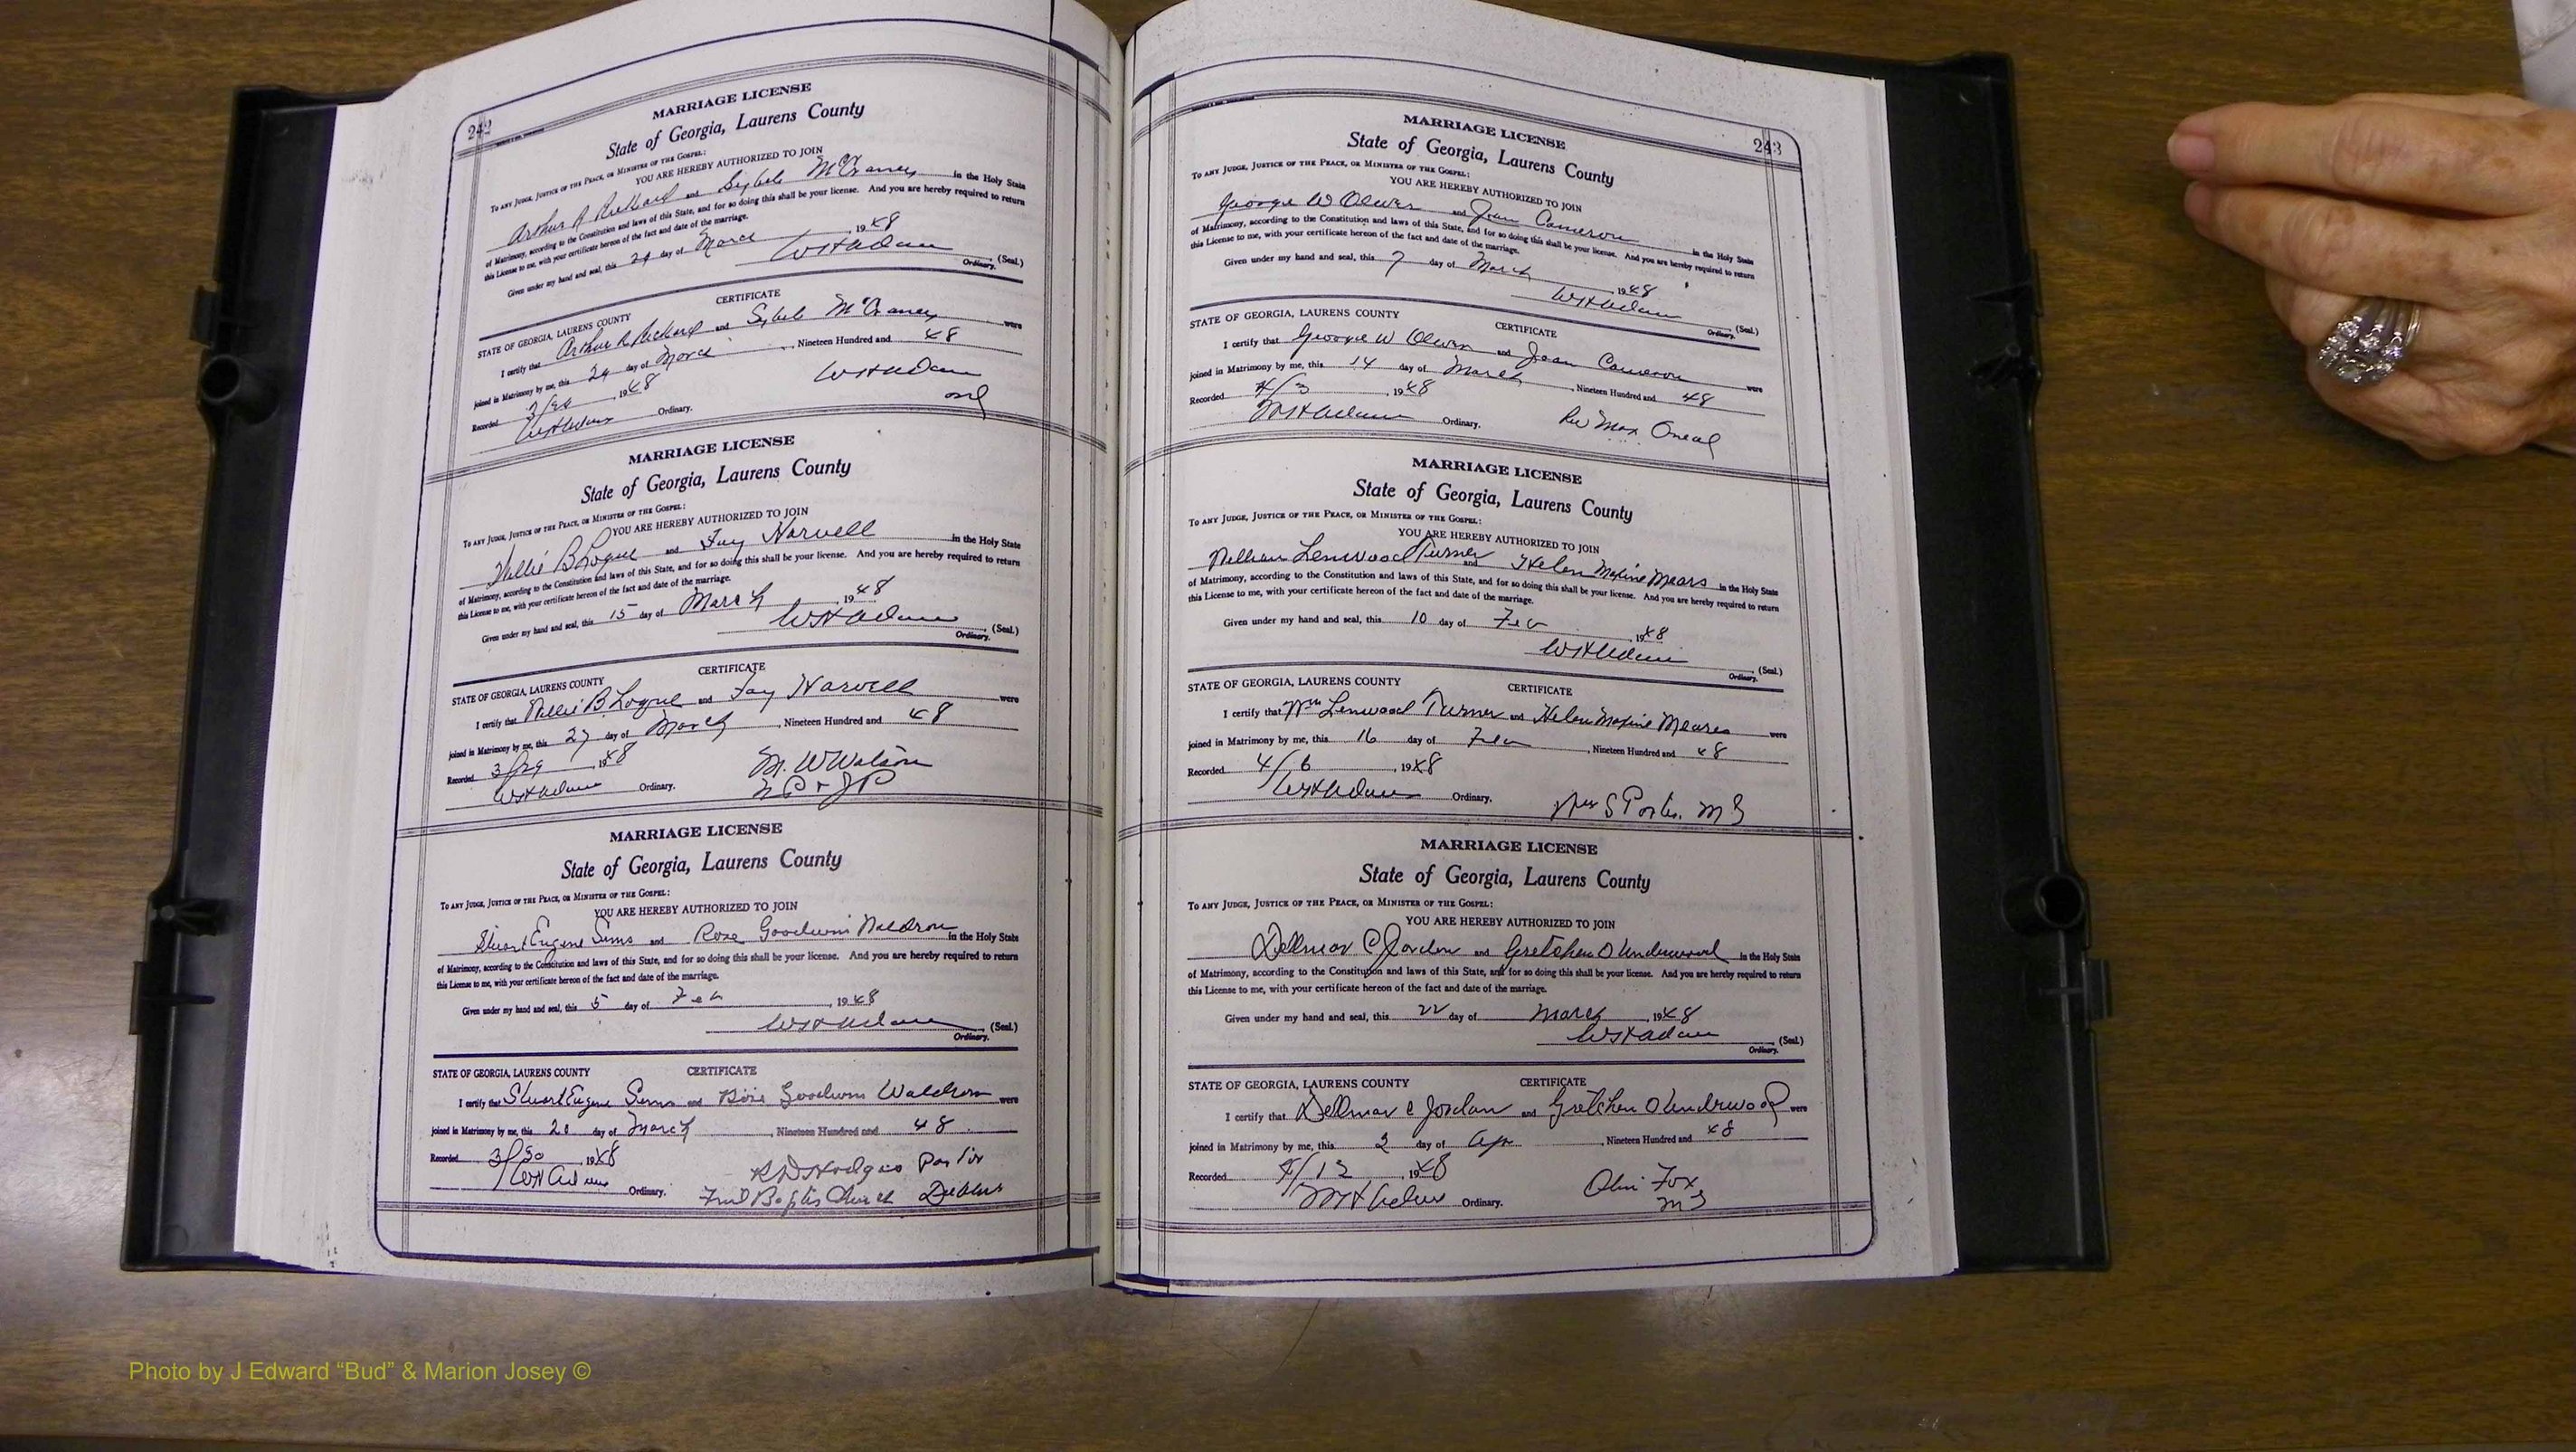 242
MARRIAGE LICENSE
State of Georgia, Laurens County
To any Judge, Justice of the Peace, or Minister of the Gospel:
YOU ARE HEREBY AUTHORIZED TO JOIN
Arthur R Rickard and Sybele McCraney in the Holy State
of Matrimony, according to the Constitution and laws of this State, and for so doing this shall be your license. And you are hereby required to return
this License to me, with your certificate hereon of the fact and date of the marriage.
Given under my hand and seal, this 24 day of March 1948
WHAdams (Seal.)
Ordinary.
CERTIFICATE
STATE OF GEORGIA, LAURENS COUNTY
I certify that Arthur R Rickard and Sybele McCraney were
joined in Matrimony by me, this 24 day of March, Nineteen Hundred and 48
Recorded 1948 WHAdams
WHAdams Ordinary. ord
MARRIAGE LICENSE
State of Georgia, Laurens County
To any Judge, Justice of the Peace, or Minister of the Gospel:
YOU ARE HEREBY AUTHORIZED TO JOIN
Willie B Logue and Fay Harvell in the Holy State
of Matrimony, according to the Constitution and laws of this State, and for so doing this shall be your license. And you are hereby required to return
this License to me, with your certificate hereon of the fact and date of the marriage.
Given under my hand and seal, this 15 day of March 1948
WHAdams (Seal.)
Ordinary.
CERTIFICATE
STATE OF GEORGIA, LAURENS COUNTY
I certify that Willie B Logue and Fay Harvell were
joined in Matrimony by me, this 27 day of March, Nineteen Hundred and 48
Recorded 3/29, 1948 M. W Watson
WHAdams Ordinary. N P & J P
MARRIAGE LICENSE
State of Georgia, Laurens County
To any Judge, Justice of the Peace, or Minister of the Gospel:
YOU ARE HEREBY AUTHORIZED TO JOIN
Stuart Eugene Sims and Rose Goodwin Waldron in the Holy State
of Matrimony, according to the Constitution and laws of this State, and for so doing this shall be your license. And you are hereby required to return
this License to me, with your certificate hereon of the fact and date of the marriage.
Given under my hand and seal, this 5 day of Feb, 1948
WHAdams (Seal.)
Ordinary.
STATE OF GEORGIA, LAURENS COUNTY CERTIFICATE
I certify that Stuart Eugene Sims and Rose Goodwin Waldron were
joined in Matrimony by me, this 20 day of March, Nineteen Hundred and 48
Recorded 3/30, 1948 Hodges Pastor
WHAdams Ordinary. First Baptis Church Dublin
243
MARRIAGE LICENSE
State of Georgia, Laurens County
To any Judge, Justice of the Peace, or Minister of the Gospel:
YOU ARE HEREBY AUTHORIZED TO JOIN
George W Oliver and Joan Cameron in the Holy State
of Matrimony, according to the Constitution and laws of this State, and for so doing this shall be your license. And you are hereby required to return
this License to me, with your certificate hereon of the fact and date of the marriage.
Given under my hand and seal, this 7 day of March 1948
WHAdams (Seal.)
Ordinary.
STATE OF GEORGIA, LAURENS COUNTY CERTIFICATE
I certify that George W Oliver and Joan Cameron were
joined in Matrimony by me, this 14 day of March, Nineteen Hundred and 48
Recorded 4/3, 1948
WHAdams Ordinary. Rev Max Oneal
MARRIAGE LICENSE
State of Georgia, Laurens County
To any Judge, Justice of the Peace, or Minister of the Gospel:
YOU ARE HEREBY AUTHORIZED TO JOIN
William Lenwood Turner and Helen Maxine Mears in the Holy State
of Matrimony, according to the Constitution and laws of this State, and for so doing this shall be your license. And you are hereby required to return
this License to me, with your certificate hereon of the fact and date of the marriage.
Given under my hand and seal, this 10 day of Feb, 1948
WHAdams (Seal.)
Ordinary.
STATE OF GEORGIA, LAURENS COUNTY CERTIFICATE
I certify that Wm Lenwood Turner and Helen Maxine Meares were
joined in Matrimony by me, this 16 day of Feb, Nineteen Hundred and 48
Recorded 4/6, 1948
WHAdams Ordinary. S Porter. M G
MARRIAGE LICENSE
State of Georgia, Laurens County
To any Judge, Justice of the Peace, or Minister of the Gospel:
YOU ARE HEREBY AUTHORIZED TO JOIN
Dellmar C Jordan and Gretchen O Underwood in the Holy State
of Matrimony, according to the Constitution and laws of this State, and for so doing this shall be your license. And you are hereby required to return
this License to me, with your certificate hereon of the fact and date of the marriage.
Given under my hand and seal, this 22 day of March, 1948
WHAdams (Seal.)
Ordinary.
STATE OF GEORGIA, LAURENS COUNTY CERTIFICATE
I certify that Dellmar C Jordan and Gretchen O Underwood were
joined in Matrimony by me, this 2 day of Apr, Nineteen Hundred and 48
Recorded 4/12, 1948 Fox
WHAdams Ordinary. M G
Photo by J Edward “Bud” & Marion Josey ©